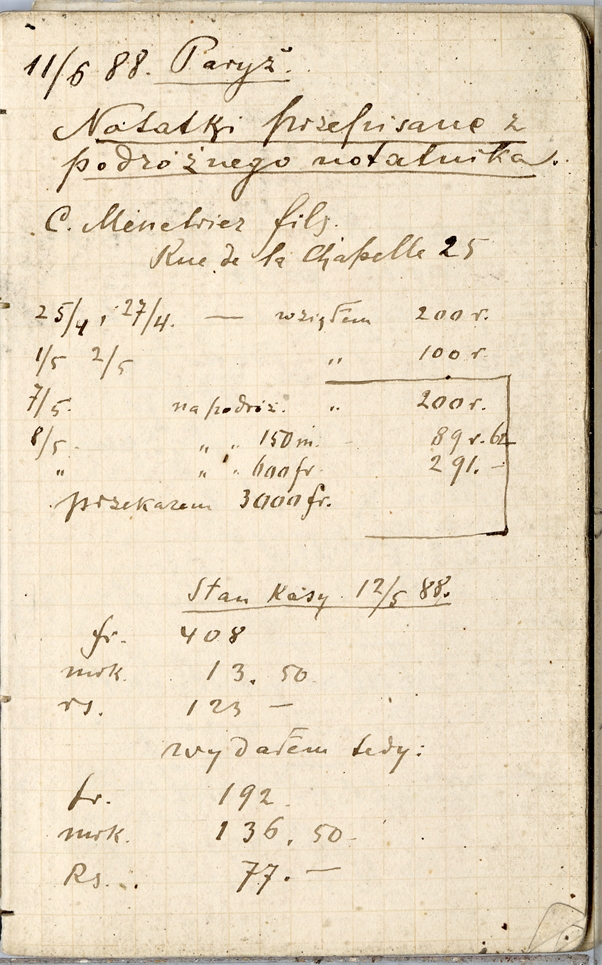 11/6 88. Paryż.
Notatki przepisane z
podróżnego notatnika.
C. Menetrier fils.
Rue de la Chapelle 25
25/4 i 27/4. — wziąłem 200 r.
1/5 2/5 " 100 r.
7/5. na podróż. " 200 r.
8/5. " " 150 m. — 89 r. 62
" " " 600 fr. 291. —
przekazem 3000 fr.
Stan Kasy 12/5 88.
fr. 408
mrk. 13. 50
rs. 123 —
wydałem tedy:
fr. 192
mrk. 136. 50
Rs. 77. —